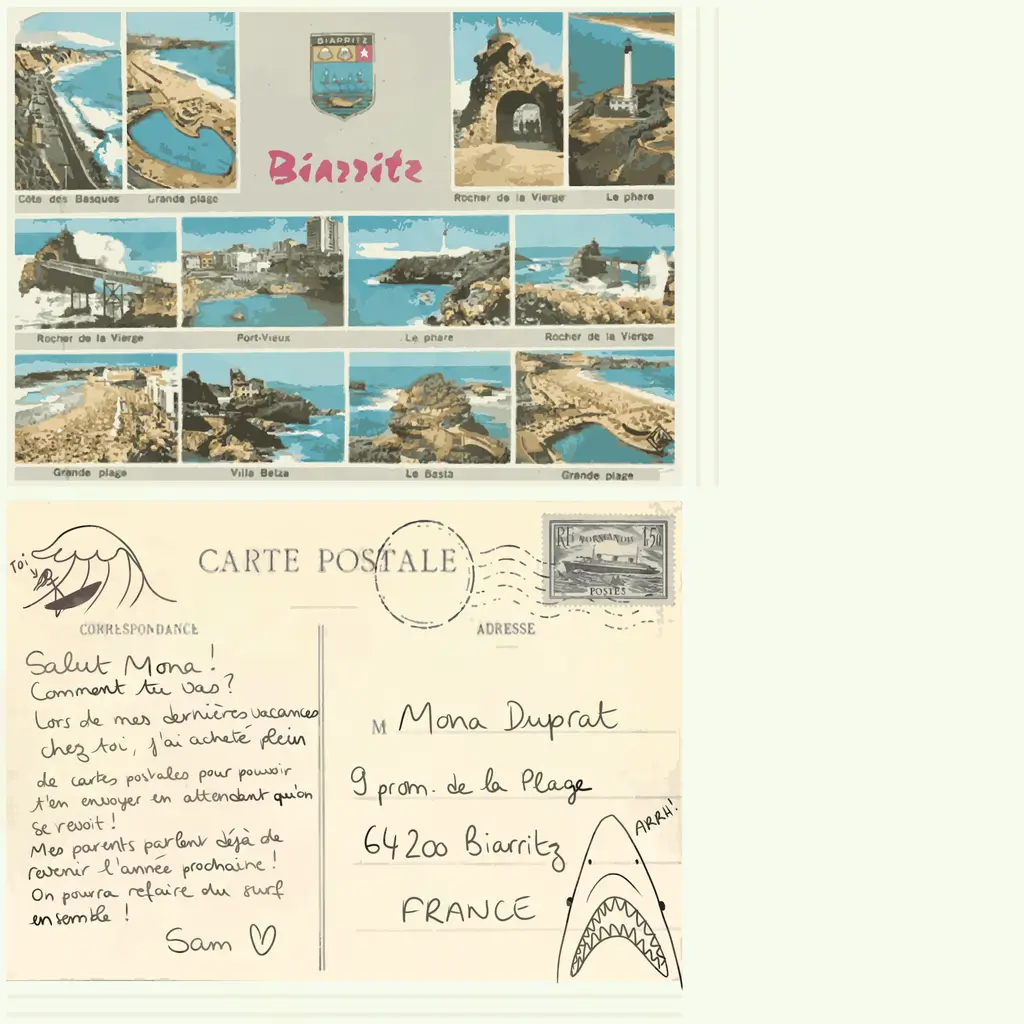 BIARRITZ
Biarritz
Côte des Basques
Grande plage
Rocher de la Vierge
Le phare
Rocher de la Vierge
Port-Vieux
Le phare
Rocher de la Vierge
Grande plage
Villa Belza
Le Basta
Grande plage
Toi
CARTE POSTALE
RF NORMANDIE 1,50
POSTES
CORRESPONDANCE
ADRESSE
Salut Mona !
Comment tu vas ?
Lors de mes dernières vacances
chez toi, j'ai acheté plein
de cartes postales pour pouvoir
t'en envoyer en attendant qu'on
se revoit !
Mes parents parlent déjà de
revenir l'année prochaine !
On pourra refaire du surf
ensemble !
Sam
M Mona Duprat
9 prom. de la Plage
64200 Biarritz
FRANCE
ARRH!